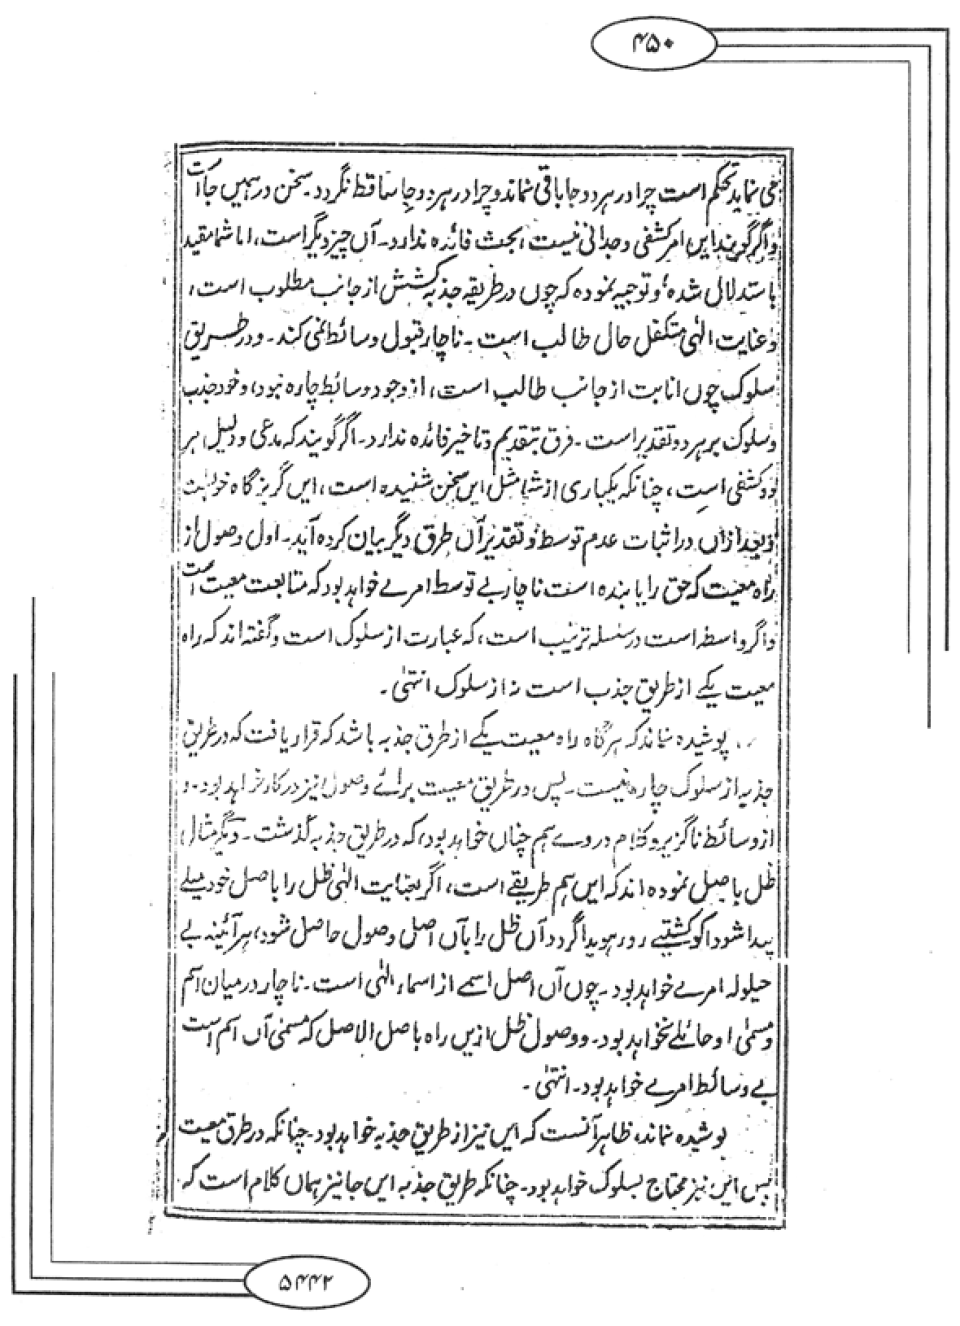 ۴۵۰
می نماید تحکم است چرا در هر دو جا باقی نماند و چرا در هر دو جا ساقط نگردد۔ سخن در ہمیں جا است
و اگر گویند ایں امر کشفی و جدانی نیست، بحث فائدہ ندارد۔ آں چیز دیگر است، اما شما مقید
باستدلالی شدہ و توجیہ نمودہ کہ چوں در طریقہ جذبہ کشش از جانب مطلوب است،
و عنایت الٰہی متکفل حال طالب است۔ ناچار قبول وسائط نمی کند۔ و در طریق
سلوک چوں انابت از جانب طالب است، از وجود وسائط چارہ نبود، و خود جذب
و سلوک بر ہر دو تقدیر است۔ فرق بتقدیم و تاخیر فائدہ ندارد۔ اگر گویند کہ مدعی و دلیل ہر
دو کشفی است، چنانکہ یکباری از شما مثل ایں سخن شنیدہ است، ایں گریز گاہ خوبست
و بعد ازاں در اثبات عدم توسط و تقدیر آں طرق دیگر بیان کردہ آید۔ اول وصول از
راہ معیت کہ حق را با بندہ است ناچار بے توسط امرے خواہد بود کہ متابعت معیت است
و اگر واسطہ است در سلسلہ ترتیب است، کہ عبارت از سلوک است و گفتہ اند کہ راہ
معیت یکے از طریق جذب است نہ از سلوک انتہٰی۔
پوشیدہ نماند کہ ہرگاہ راہ معیت یکے از طرق جذبہ باشد کہ قرار یافت کہ در طریق
جذبہ از سلوک چارہ نیست۔ پس در طریق معیت برائے وصول نیز در کار خواہد بود۔ و
از وسائط ناگزیر و کلام در وے ہم چناں خواہد بود، کہ در طریق جذبہ گذشت۔ دیگر مثال
ظل باصل نمودہ اند کہ ایں ہم طریقے است، اگر بعنایت الٰہی ظل را باصل خود میلے
پیدا شود او کششے رو ہویدا گردد آں ظل را بآں اصل وصول حاصل شود، ہر آئینہ بے
حیلولہ امرے خواہد بود۔ چوں آں اصل اسمے از اسماء الٰہی است۔ ناچار درمیان اسم
و مسمیٰ او حائلے نخواہد بود۔ و وصول ظل ازیں راہ باصل الاصل کہ مسمیٰ آں اسم است
بے وسائط امرے خواہد بود۔ انتہٰی۔
پوشیدہ نماند، ظاہرا آنست کہ ایں نیز از طریق جذبہ خواہد بود۔ چنانکہ در طرق معیت
پس ایں نیز محتاج بسلوک خواہد بود۔ چنانکہ طریق جذبہ ایں جا نیز ہماں کلام است کہ
۵۴۴۲